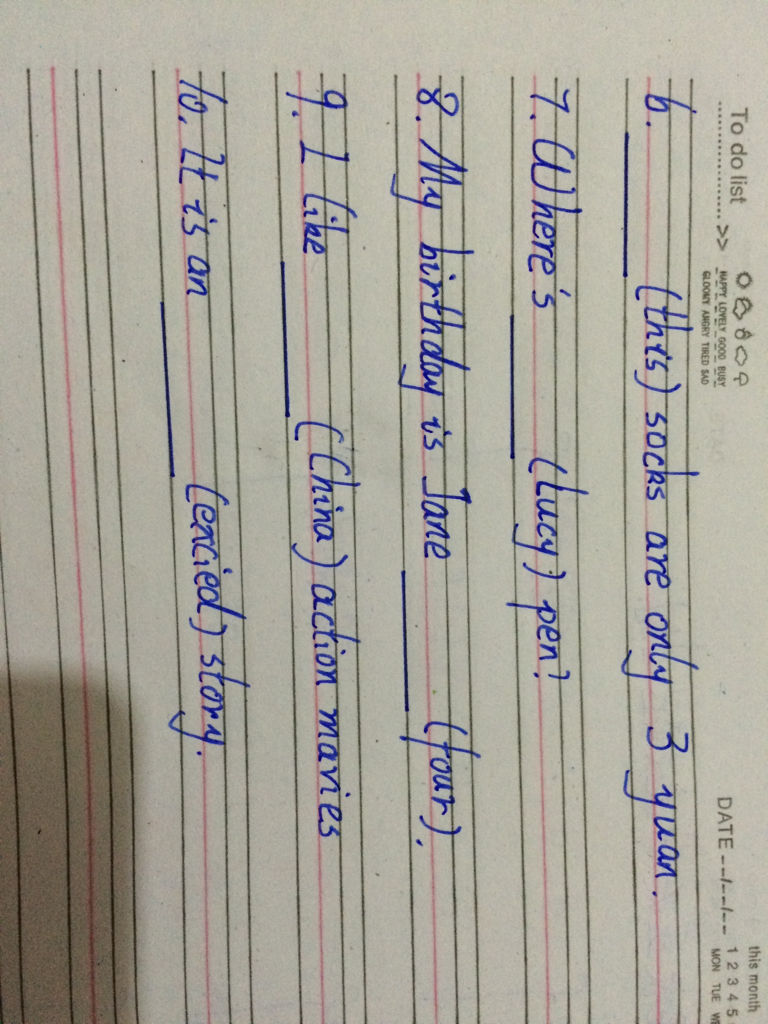 To do list ................... >> HAPPY LOVELY GOOD BUSY DATE --/--/-- this month
GLOOMY ANGRY TIRED SAD 1 2 3 4 5
MON TUE
6. ______ (this) socks are only 3 yuan.
7. Where's ______ (Lucy) pen?
8. My birthday is Jane ______ (four).
9. I like ______ (China) action mavies
10. It is an ______ (encied) story.